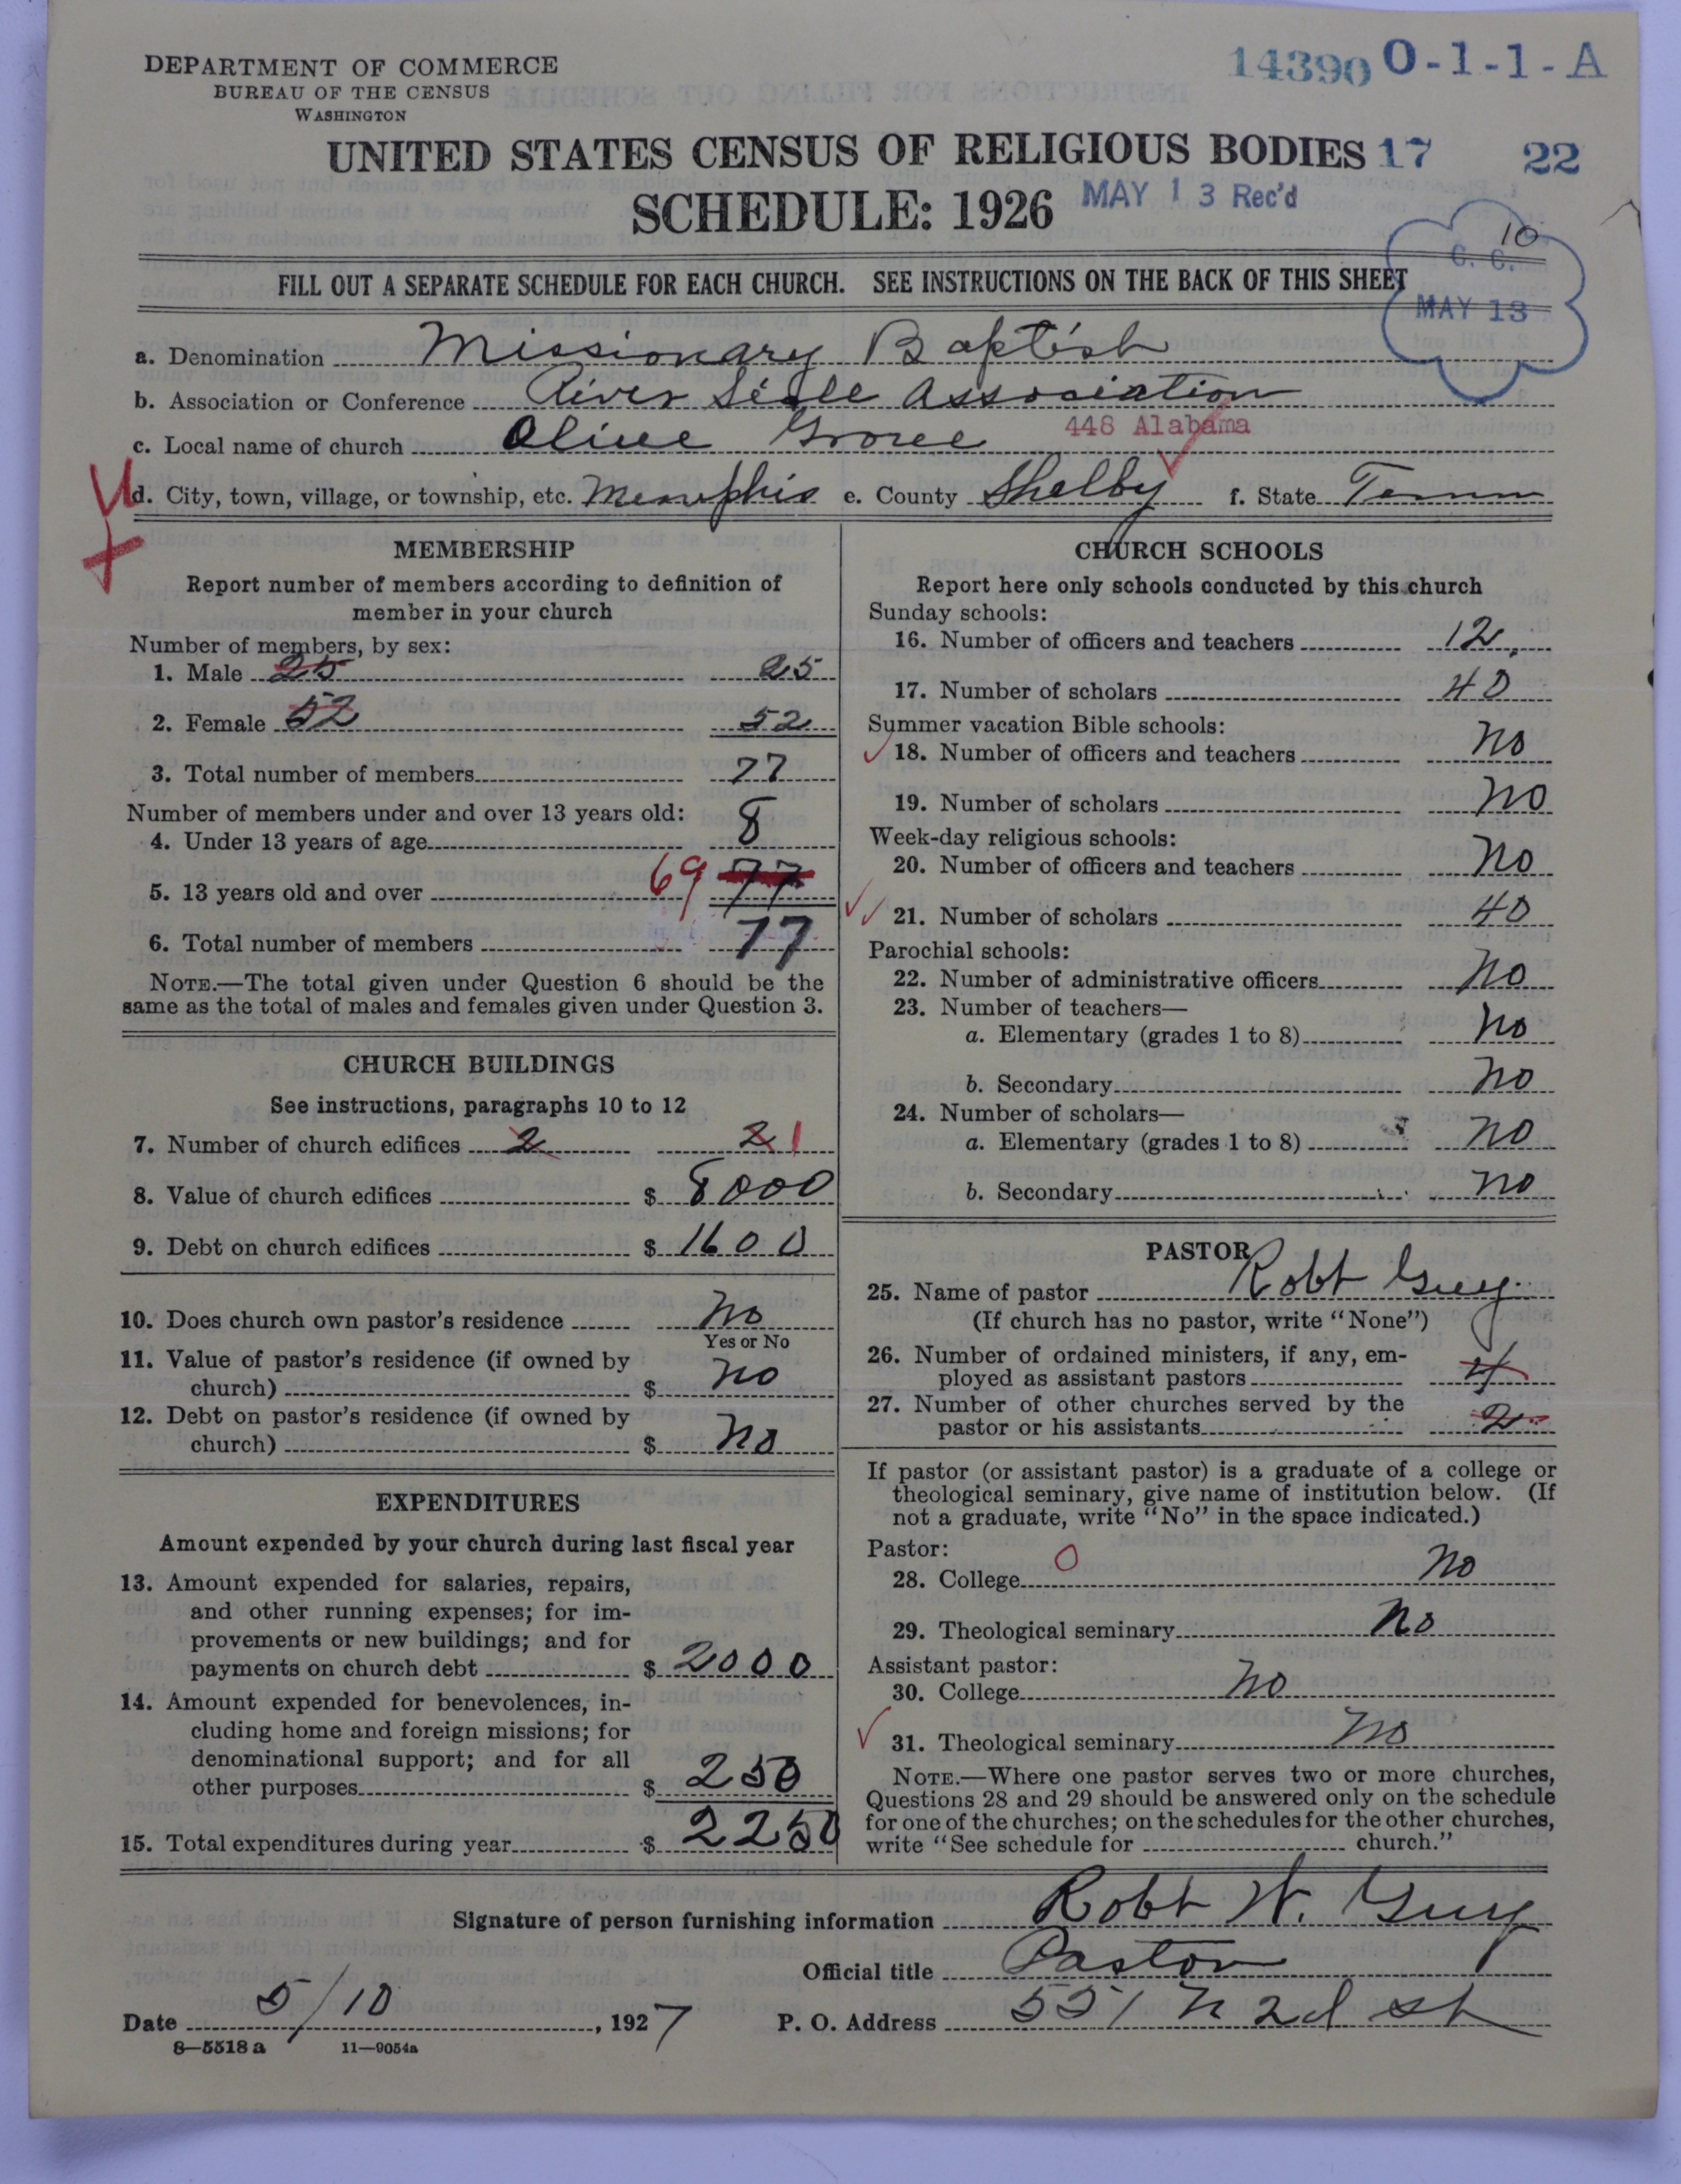 DEPARTMENT OF COMMERCE
BUREAU OF THE CENSUS
WASHINGTON
14390 O-1-1-A
UNITED STATES CENSUS OF RELIGIOUS BODIES 17 22
SCHEDULE: 1926 MAY 13 Rec'd
10
C. C.
MAY 13
FILL OUT A SEPARATE SCHEDULE FOR EACH CHURCH. SEE INSTRUCTIONS ON THE BACK OF THIS SHEET
a. Denomination Missionary Baptish
b. Association or Conference River Side Association
c. Local name of church Olive Grove 448 Alabama
d. City, town, village, or township, etc. Memphis e. County Shelby f. State Tenn
MEMBERSHIP
Report number of members according to definition of
member in your church
Number of members, by sex:
1. Male 25 25
2. Female 52 52
3. Total number of members 77
Number of members under and over 13 years old:
4. Under 13 years of age 8
5. 13 years old and over 69 77
6. Total number of members 77
NOTE.—The total given under Question 6 should be the
same as the total of males and females given under Question 3.
CHURCH BUILDINGS
See instructions, paragraphs 10 to 12
7. Number of church edifices 2 2 1
8. Value of church edifices $ 8000
9. Debt on church edifices $ 1600
10. Does church own pastor's residence No
Yes or No
11. Value of pastor's residence (if owned by
church) $ no
12. Debt on pastor's residence (if owned by
church) $ no
EXPENDITURES
Amount expended by your church during last fiscal year
13. Amount expended for salaries, repairs,
and other running expenses; for im-
provements or new buildings; and for
payments on church debt $ 2000
14. Amount expended for benevolences, in-
cluding home and foreign missions; for
denominational support; and for all
other purposes $ 250
15. Total expenditures during year $ 2250
CHURCH SCHOOLS
Report here only schools conducted by this church
Sunday schools:
16. Number of officers and teachers 12
17. Number of scholars 40
Summer vacation Bible schools:
18. Number of officers and teachers no
19. Number of scholars no
Week-day religious schools:
20. Number of officers and teachers no
21. Number of scholars 40
Parochial schools:
22. Number of administrative officers no
23. Number of teachers—
a. Elementary (grades 1 to 8) no
b. Secondary no
24. Number of scholars—
a. Elementary (grades 1 to 8) no
b. Secondary no
PASTOR
25. Name of pastor Robt Guy
(If church has no pastor, write "None")
26. Number of ordained ministers, if any, em-
ployed as assistant pastors 4
27. Number of other churches served by the
pastor or his assistants 2
If pastor (or assistant pastor) is a graduate of a college or
theological seminary, give name of institution below. (If
not a graduate, write "No" in the space indicated.)
Pastor: O
28. College no
29. Theological seminary no
Assistant pastor:
30. College no
31. Theological seminary no
NOTE.—Where one pastor serves two or more churches,
Questions 28 and 29 should be answered only on the schedule
for one of the churches; on the schedules for the other churches,
write "See schedule for church."
Signature of person furnishing information Robt W. Guy
Official title Pastor
Date 5/10, 1927 P. O. Address 551 N 2d st
8—5518 a 11—9054a